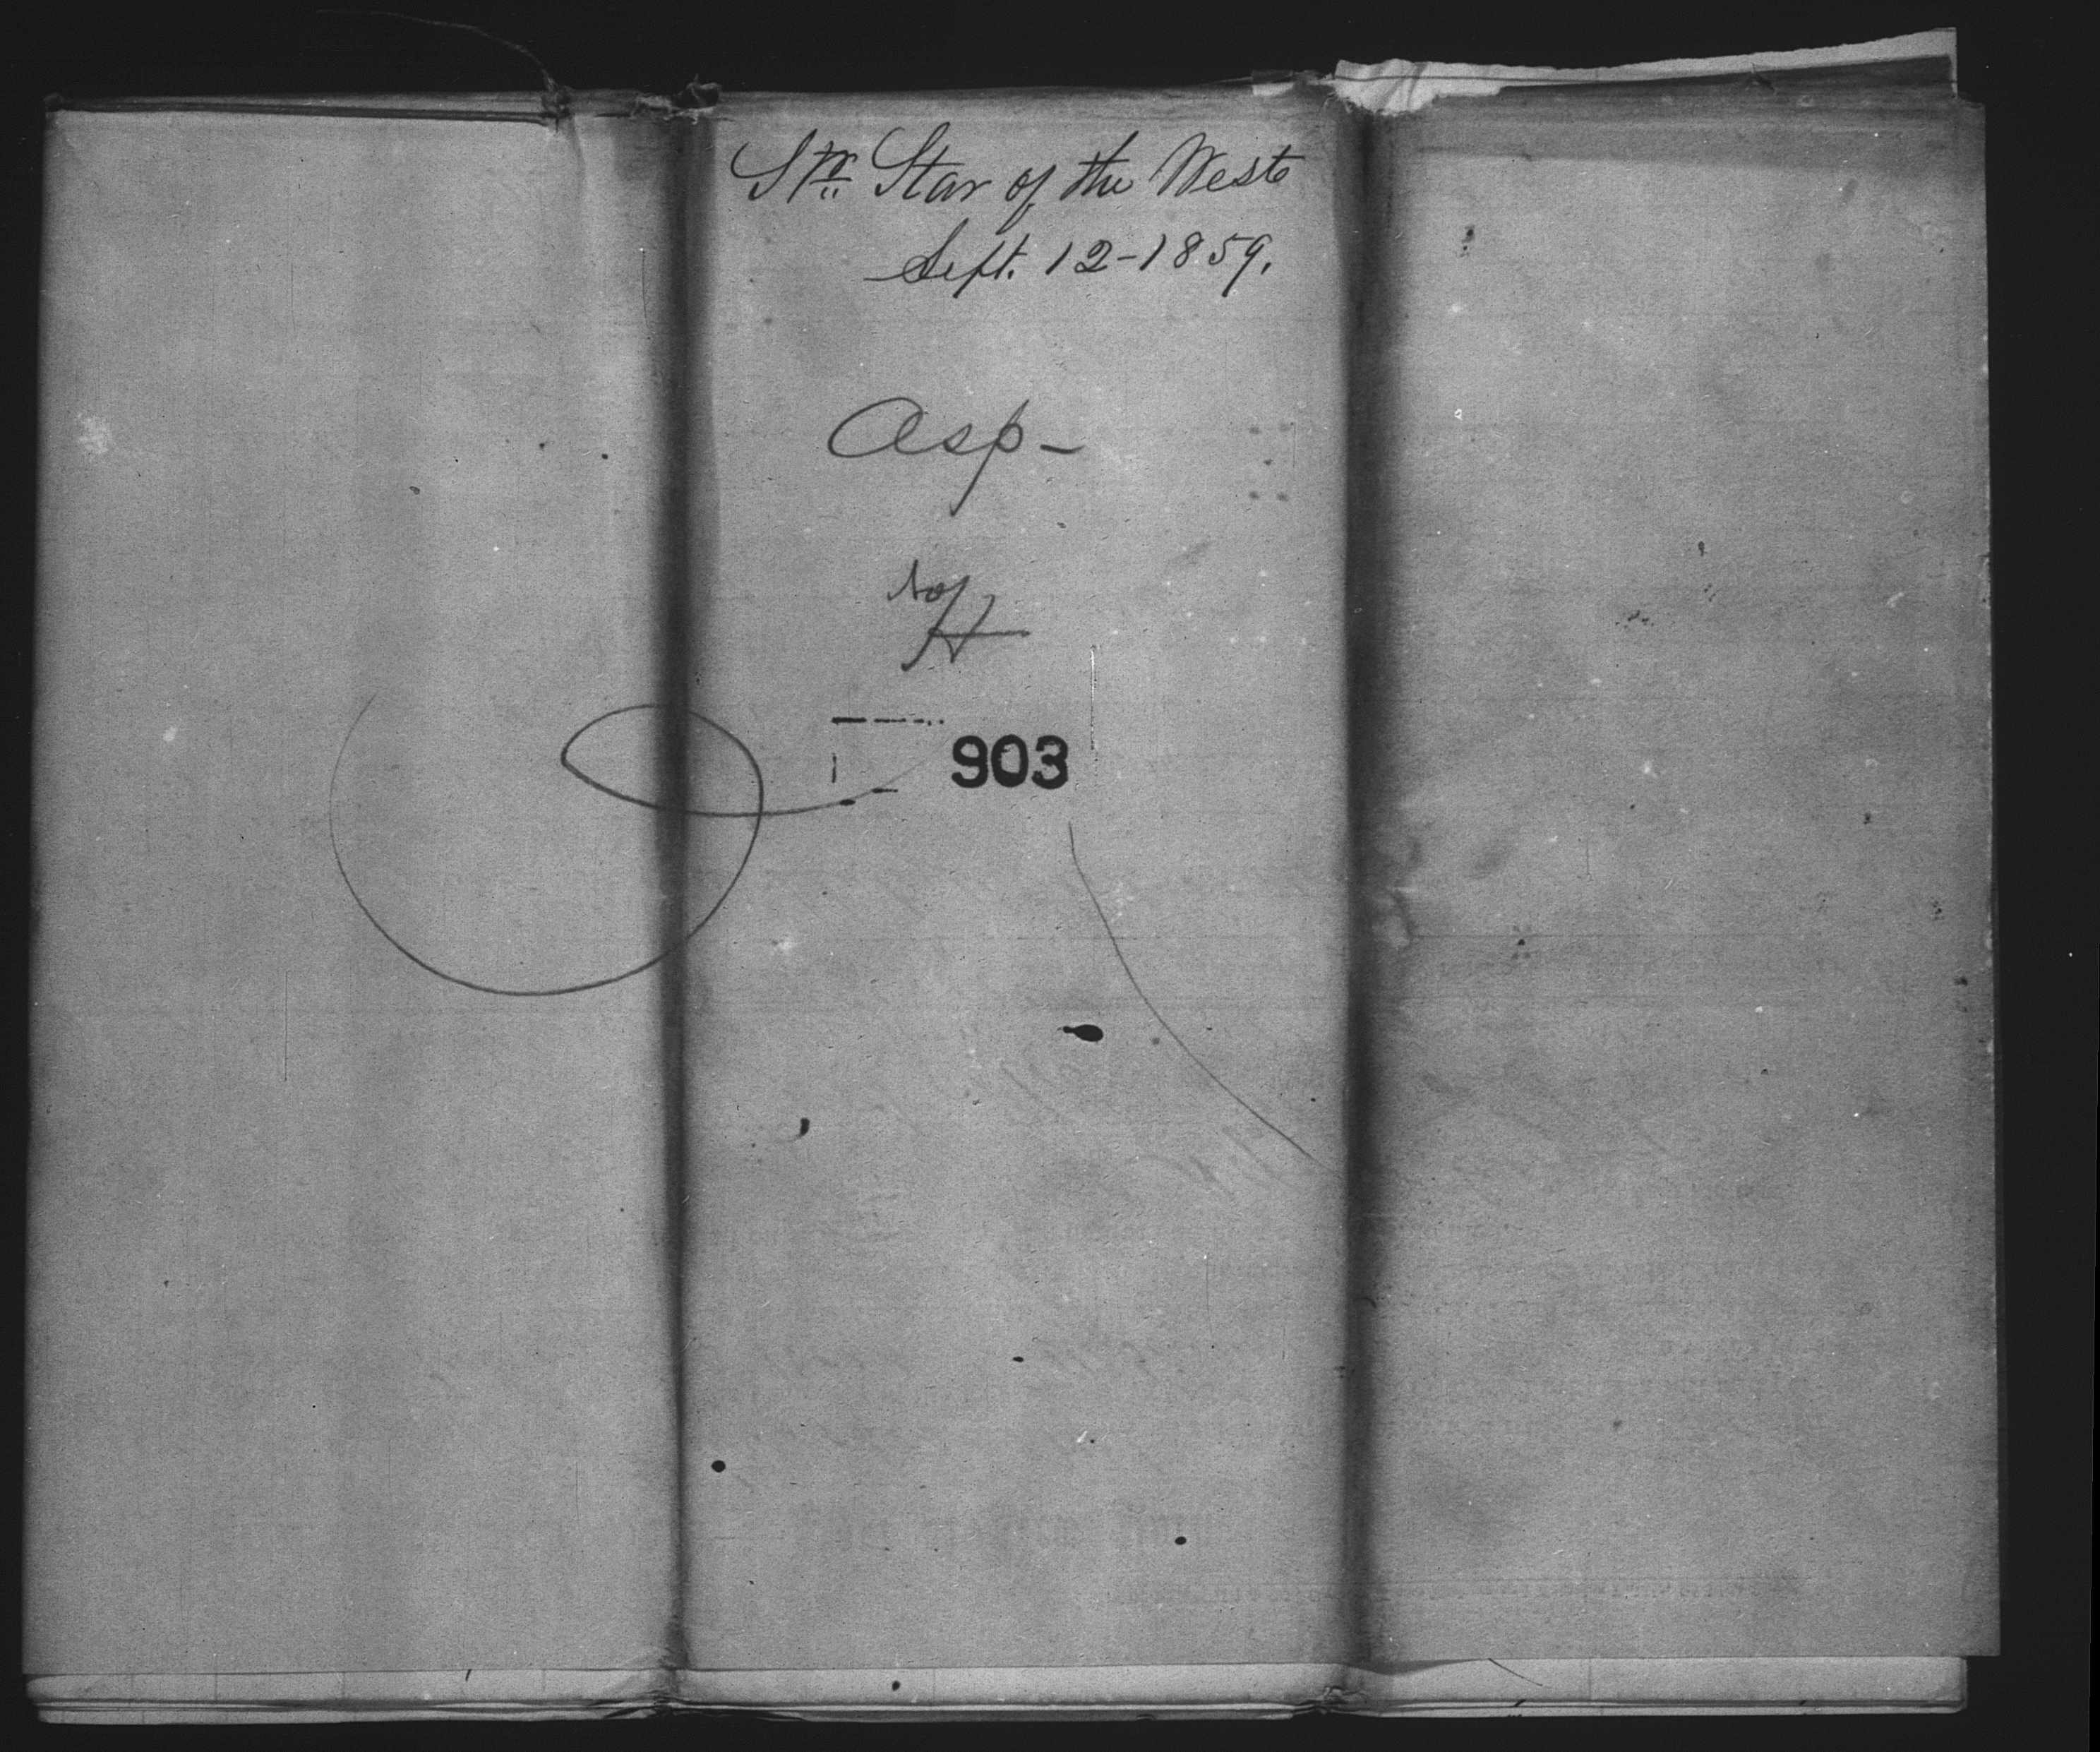 Str. Star of the West
Sept. 12-1859.
Asp-
903